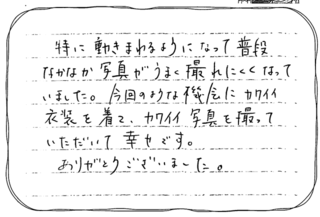 特に動きまわるようになって普段
なかなか写真がうまく撮れにくくなって
いました。今回のような機会にカワイイ
衣装を着て、カワイイ写真を撮って
いただいて幸せです。
ありがとうございました。